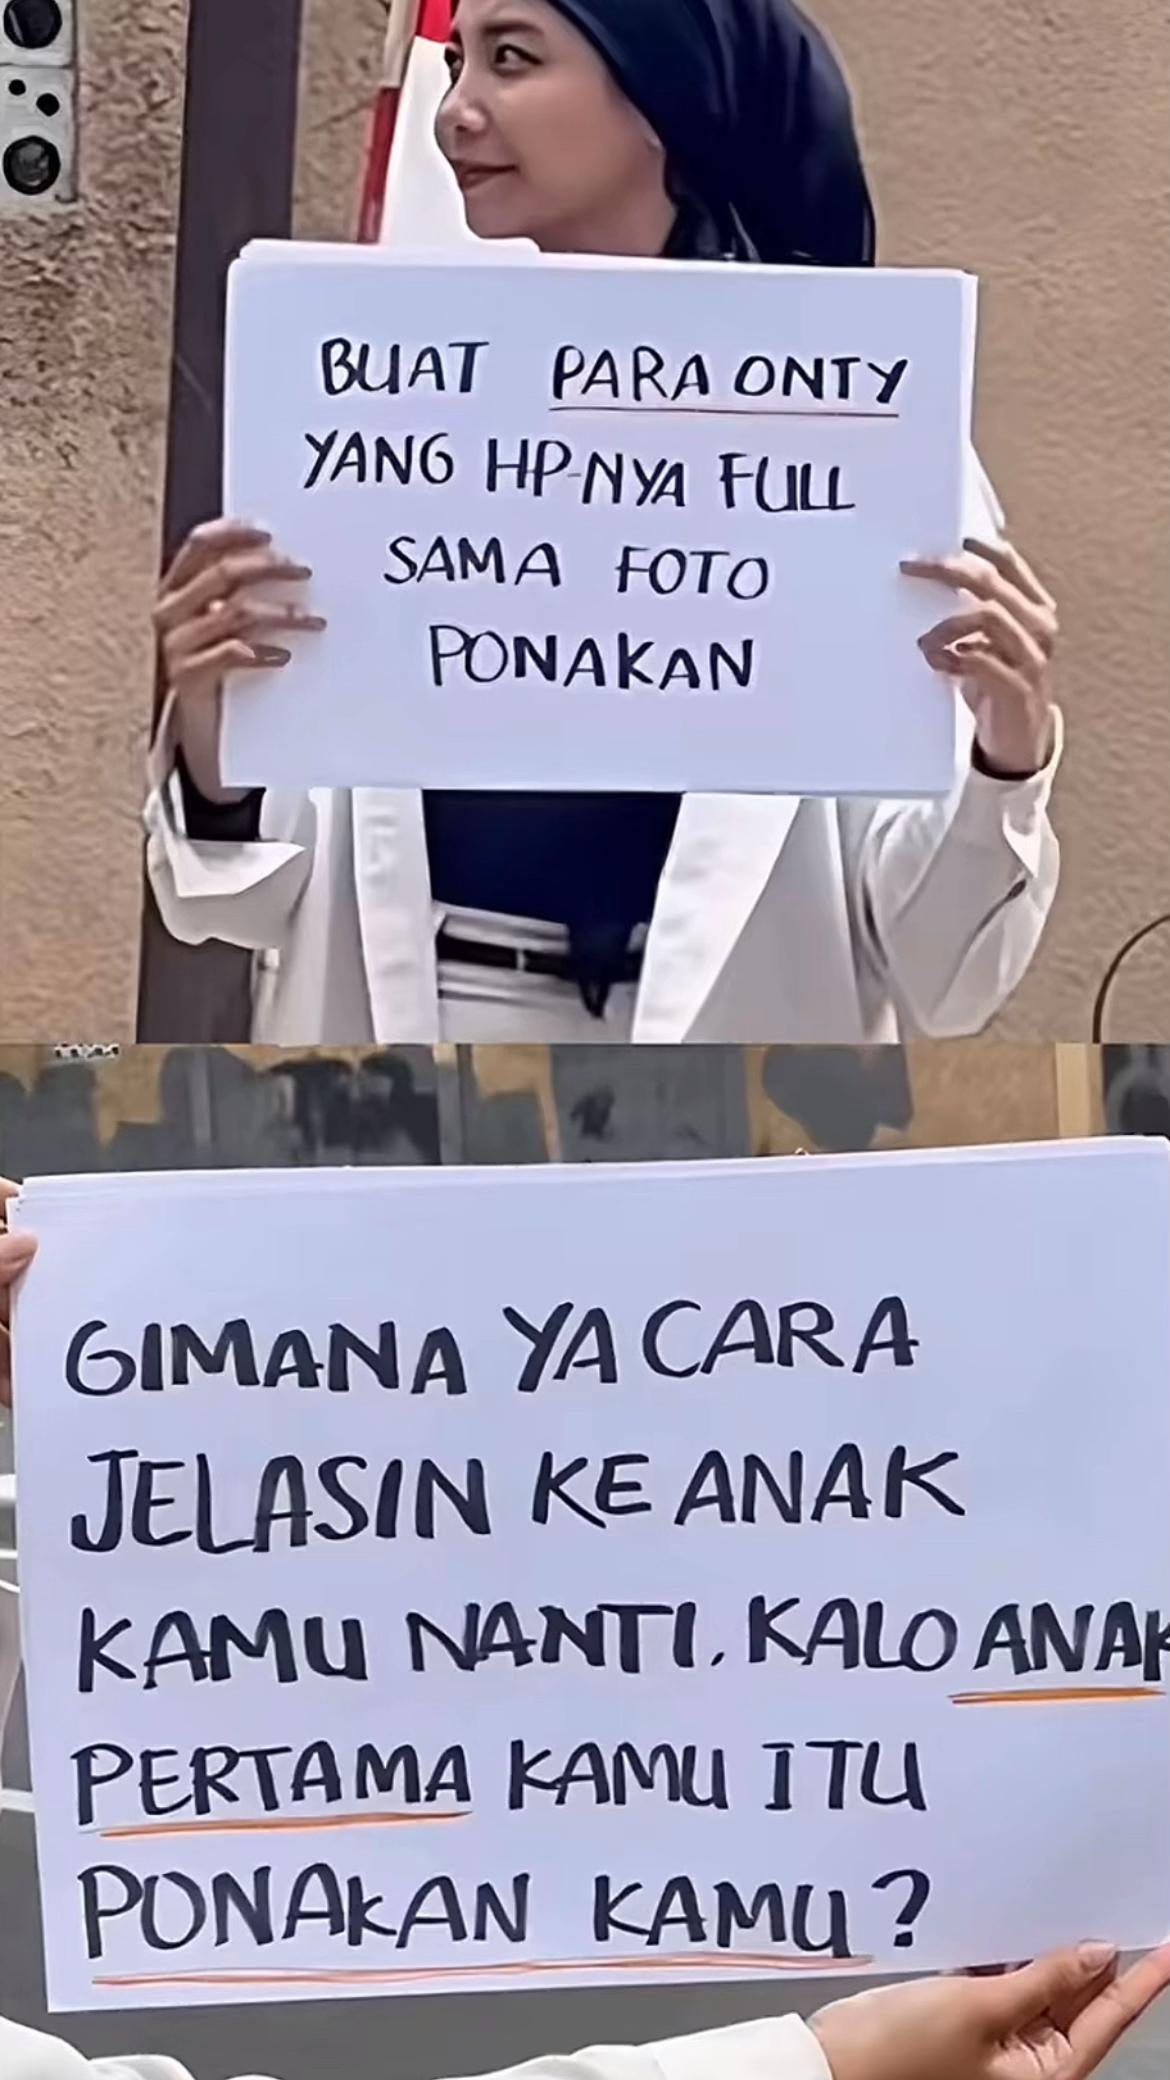 BUAT PARA ONTY
YANG HP-NYA FULL
SAMA FOTO
PONAKAN
GIMANA YA CARA
JELASIN KE ANAK
KAMU NANTI, KALO ANAK
PERTAMA KAMU ITU
PONAKAN KAMU?